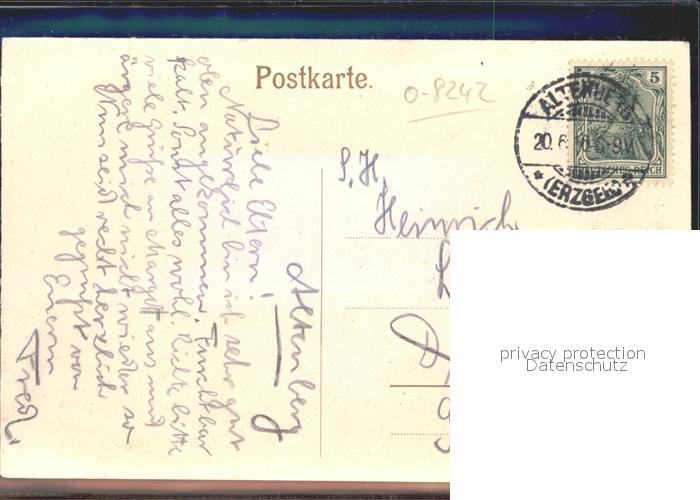 Postkarte.
0-8242
5
ALTENBERG
20.6.
(ERZGEB.)
DEUTSCHES REICH
S. H.
Heinrich
Altenberg
Liebe Eltern!
Natürlich bin ich sehr gut
oben angekommen. Furchtbar
kalt. Sonst alles wohl. Richte bitte
viele Grüße an Margot aus und
ärgert mich nicht wieder so
Nun seid recht herzlich
gegrüßt von
Eurem
Fred.
privacy protection
Datenschutz